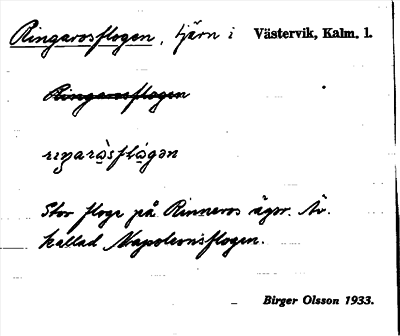 Ringarosflogen, tjärn i Västervik, Kalm. l.
Ringarosflogen
riŋaròsflógən
Stor floge på Rinneros ägor. Äv.
kallad Napoleonsflogen.
Birger Olsson 1933.